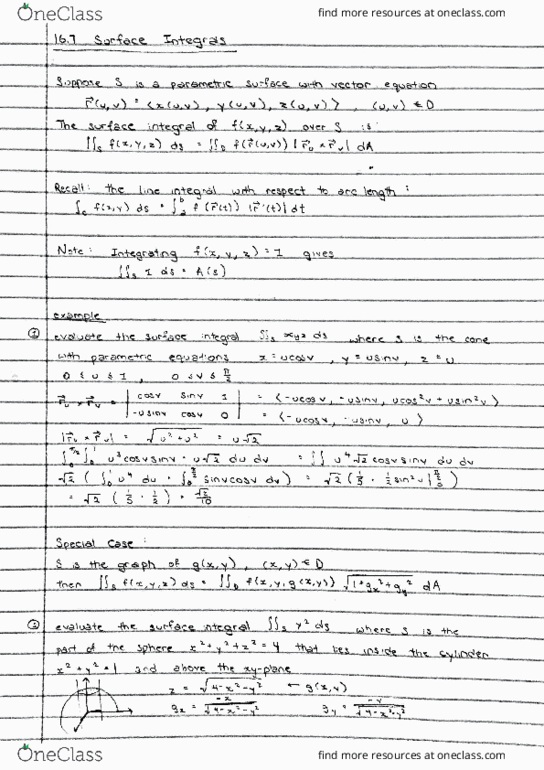 OneClass
find more resources at oneclass.com
16.7 Surface Integrals
Suppose S is a parametric surface with vector equation
r⃗(u,v) = <x(u,v), y(u,v), z(u,v)>, (u,v) ∈ D
The surface integral of f(x,y,z) over S is:
∬_S f(x,y,z) ds = ∬_D f(r⃗(u,v)) |r⃗_u × r⃗_v| dA
Recall: the line integral with respect to arc length:
∫_C f(x,y) ds = ∫_a^b f(r⃗(t)) |r⃗'(t)| dt
Note: Integrating f(x,y,z) = 1 gives
∬_S 1 ds = A(s)
example
① evaluate the surface integral ∬_S xyz ds where S is the cone
with parametric equations x = ucosv, y = usinv, z = u
0 ≤ u ≤ 1, 0 ≤ v ≤ π/2
r⃗_u × r⃗_v = | cosv sinv 1 | = <-ucosv, -usinv, ucos²v + usin²v>
| -usinv ucosv 0 | = <-ucosv, -usinv, u>
|r⃗_u × r⃗_v| = √(u² + u²) = u√2
∫_0^{π/2} ∫_0^1 u³cosvsinv · u√2 du dv = ∬ u⁴√2 cosvsinv du dv
√2 (∫_0^1 u⁴ du · ∫_0^{π/2} sinvcosv dv) = √2 (1/5 · 1/2 sin²v |_0^{π/2})
= √2 (1/5 · 1/2) = √2/10
Special Case:
S is the graph of g(x,y), (x,y) ∈ D
then ∬_S f(x,y,z) ds = ∬_D f(x,y,g(x,y)) √(1+g_x²+g_y²) dA
② evaluate the surface integral ∬_S y² ds where S is the
part of the sphere x²+y²+z² = 4 that lies inside the cylinder
x²+y² = 1 and above the xy-plane
z = √(4-x²-y²) ← g(x,y)
g_x = -x/√(4-x²-y²) g_y = -y/√(4-x²-y²)
OneClass
find more resources at oneclass.com